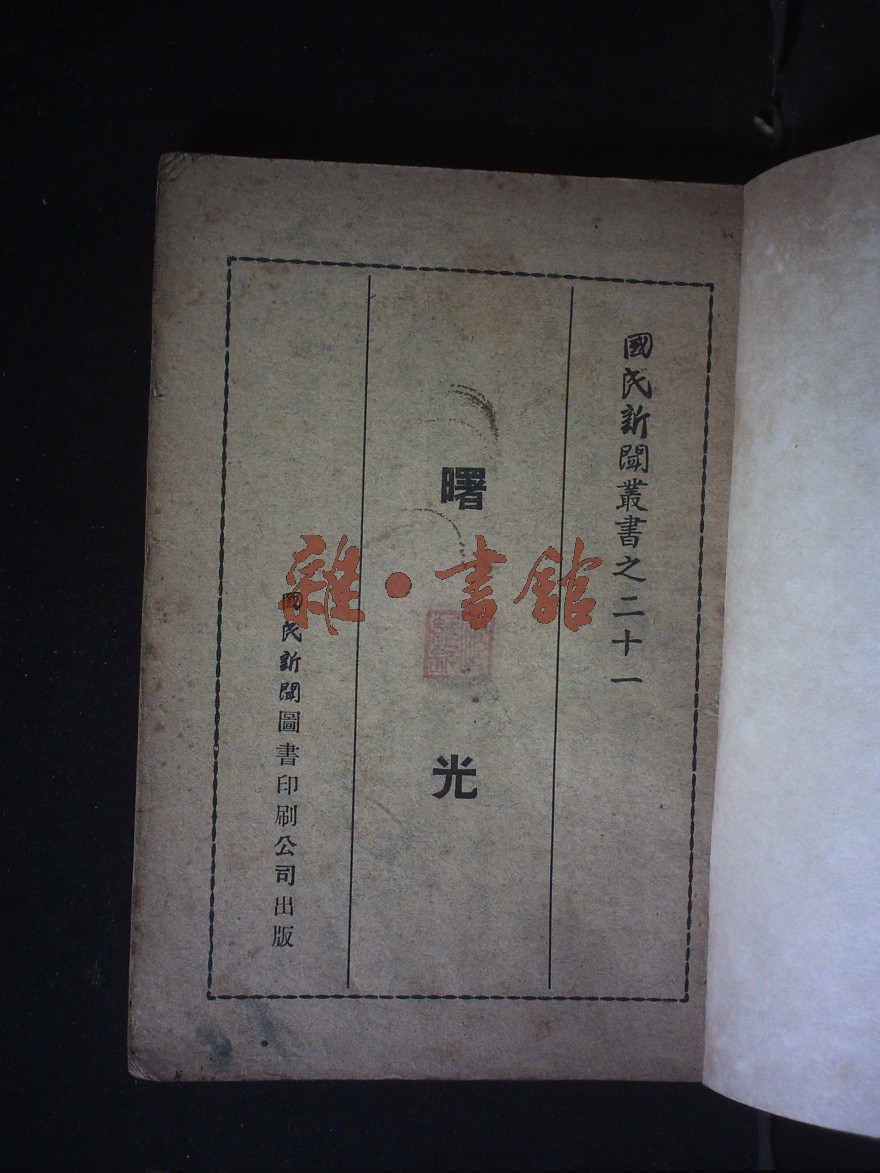 國民新聞叢書之二十一
曙光
國民新聞圖書印刷公司出版
雜·書館